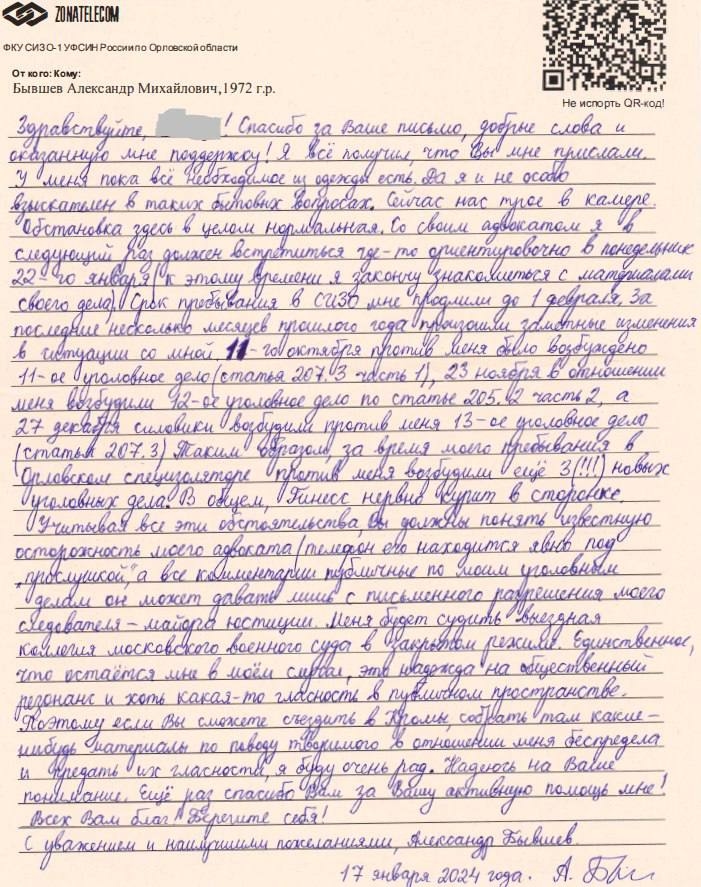 ZONATELECOM
ФКУ СИЗО-1 УФСИН России по Орловской области
От кого: Кому:
Бывшев Александр Михайлович, 1972 г.р.
Не испорть QR-код!
Здравствуйте, ! Спасибо за Ваше письмо, добрые слова и
оказанную мне поддержку! Я всё получил, что Вы мне прислали.
У меня пока всё необходимое из одежды есть. Да я и не особо
взыскателен в таких бытовых вопросах. Сейчас нас трое в камере.
Обстановка здесь в целом нормальная. Со своим адвокатом я в
следующий раз должен встретиться где-то ориентировочно в понедельник
22-го января (к этому времени я закончу знакомиться с материалами
своего дела). Срок пребывания в СИЗО мне продлили до 1 февраля. За
последние несколько месяцев прошлого года произошли заметные изменения
в ситуации со мной. 11-го октября против меня было возбуждено
11-ое уголовное дело (статья 207.3 часть 1), 23 ноября в отношении
меня возбудили 12-ое уголовное дело по статье 205.2 часть 2, а
27 декабря силовики возбудили против меня 13-ое уголовное дело
(статья 207.3) Таким образом, за время моего пребывания в
Орловском специзоляторе против меня возбудили ещё 3(!!!) новых
уголовных дела. В общем, Гинесс нервно курит в сторонке.
Учитывая все эти обстоятельства, Вы должны понять известную
осторожность моего адвоката (телефон его находится явно под
„прослушкой“, а все комментарии публичные по моим уголовным
делам он может давать лишь с письменного разрешения моего
следователя – майора юстиции. Меня будет судить выездная
коллегия московского военного суда в закрытом режиме. Единственное,
что остаётся мне в моём случае, это надежда на общественный
резонанс и хоть какая-то гласность в публичном пространстве.
Поэтому если Вы сможете съездить в Кромы, собрать там какие-
нибудь материалы по поводу творимого в отношении меня беспредела
и предать их гласности, я буду очень рад. Надеюсь на Ваше
понимание. Ещё раз спасибо Вам за Вашу активную помощь мне!
Всех Вам благ! Берегите себя!
С уважением и наилучшими пожеланиями, Александр Бывшев.
17 января 2024 года. А. Б